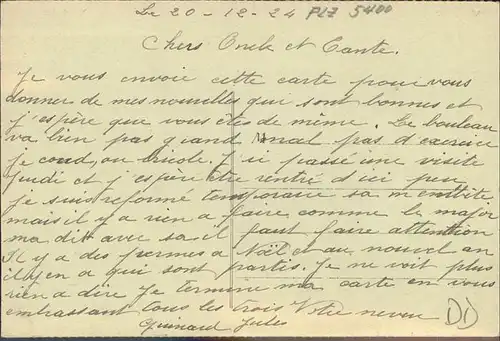 Le 20-12-24 PLZ 5400
Chers Oncle et Tante.
Je vous envoie cette carte pour vous
donner de mes nouvelles qui sont bonnes et
j'espère que vous êtes de même. Le bouleau
va bien pas grand mal pas d'exercice
je coud, on bricole. J'ai passé une visite
jeudi et j'espère être rentré d'ici peu
je suis reformé temporaire sa m'embite
mais il y a rien a faire comme le major
ma dit avec sa il faut faire attention
Il y a des permes a Noël et au nouvel an
il y en a qui sont partis. Je ne voit plus
rien a dire Je termine ma carte en vous
embrassant tous les trois Votre neveu
Guinard Jules